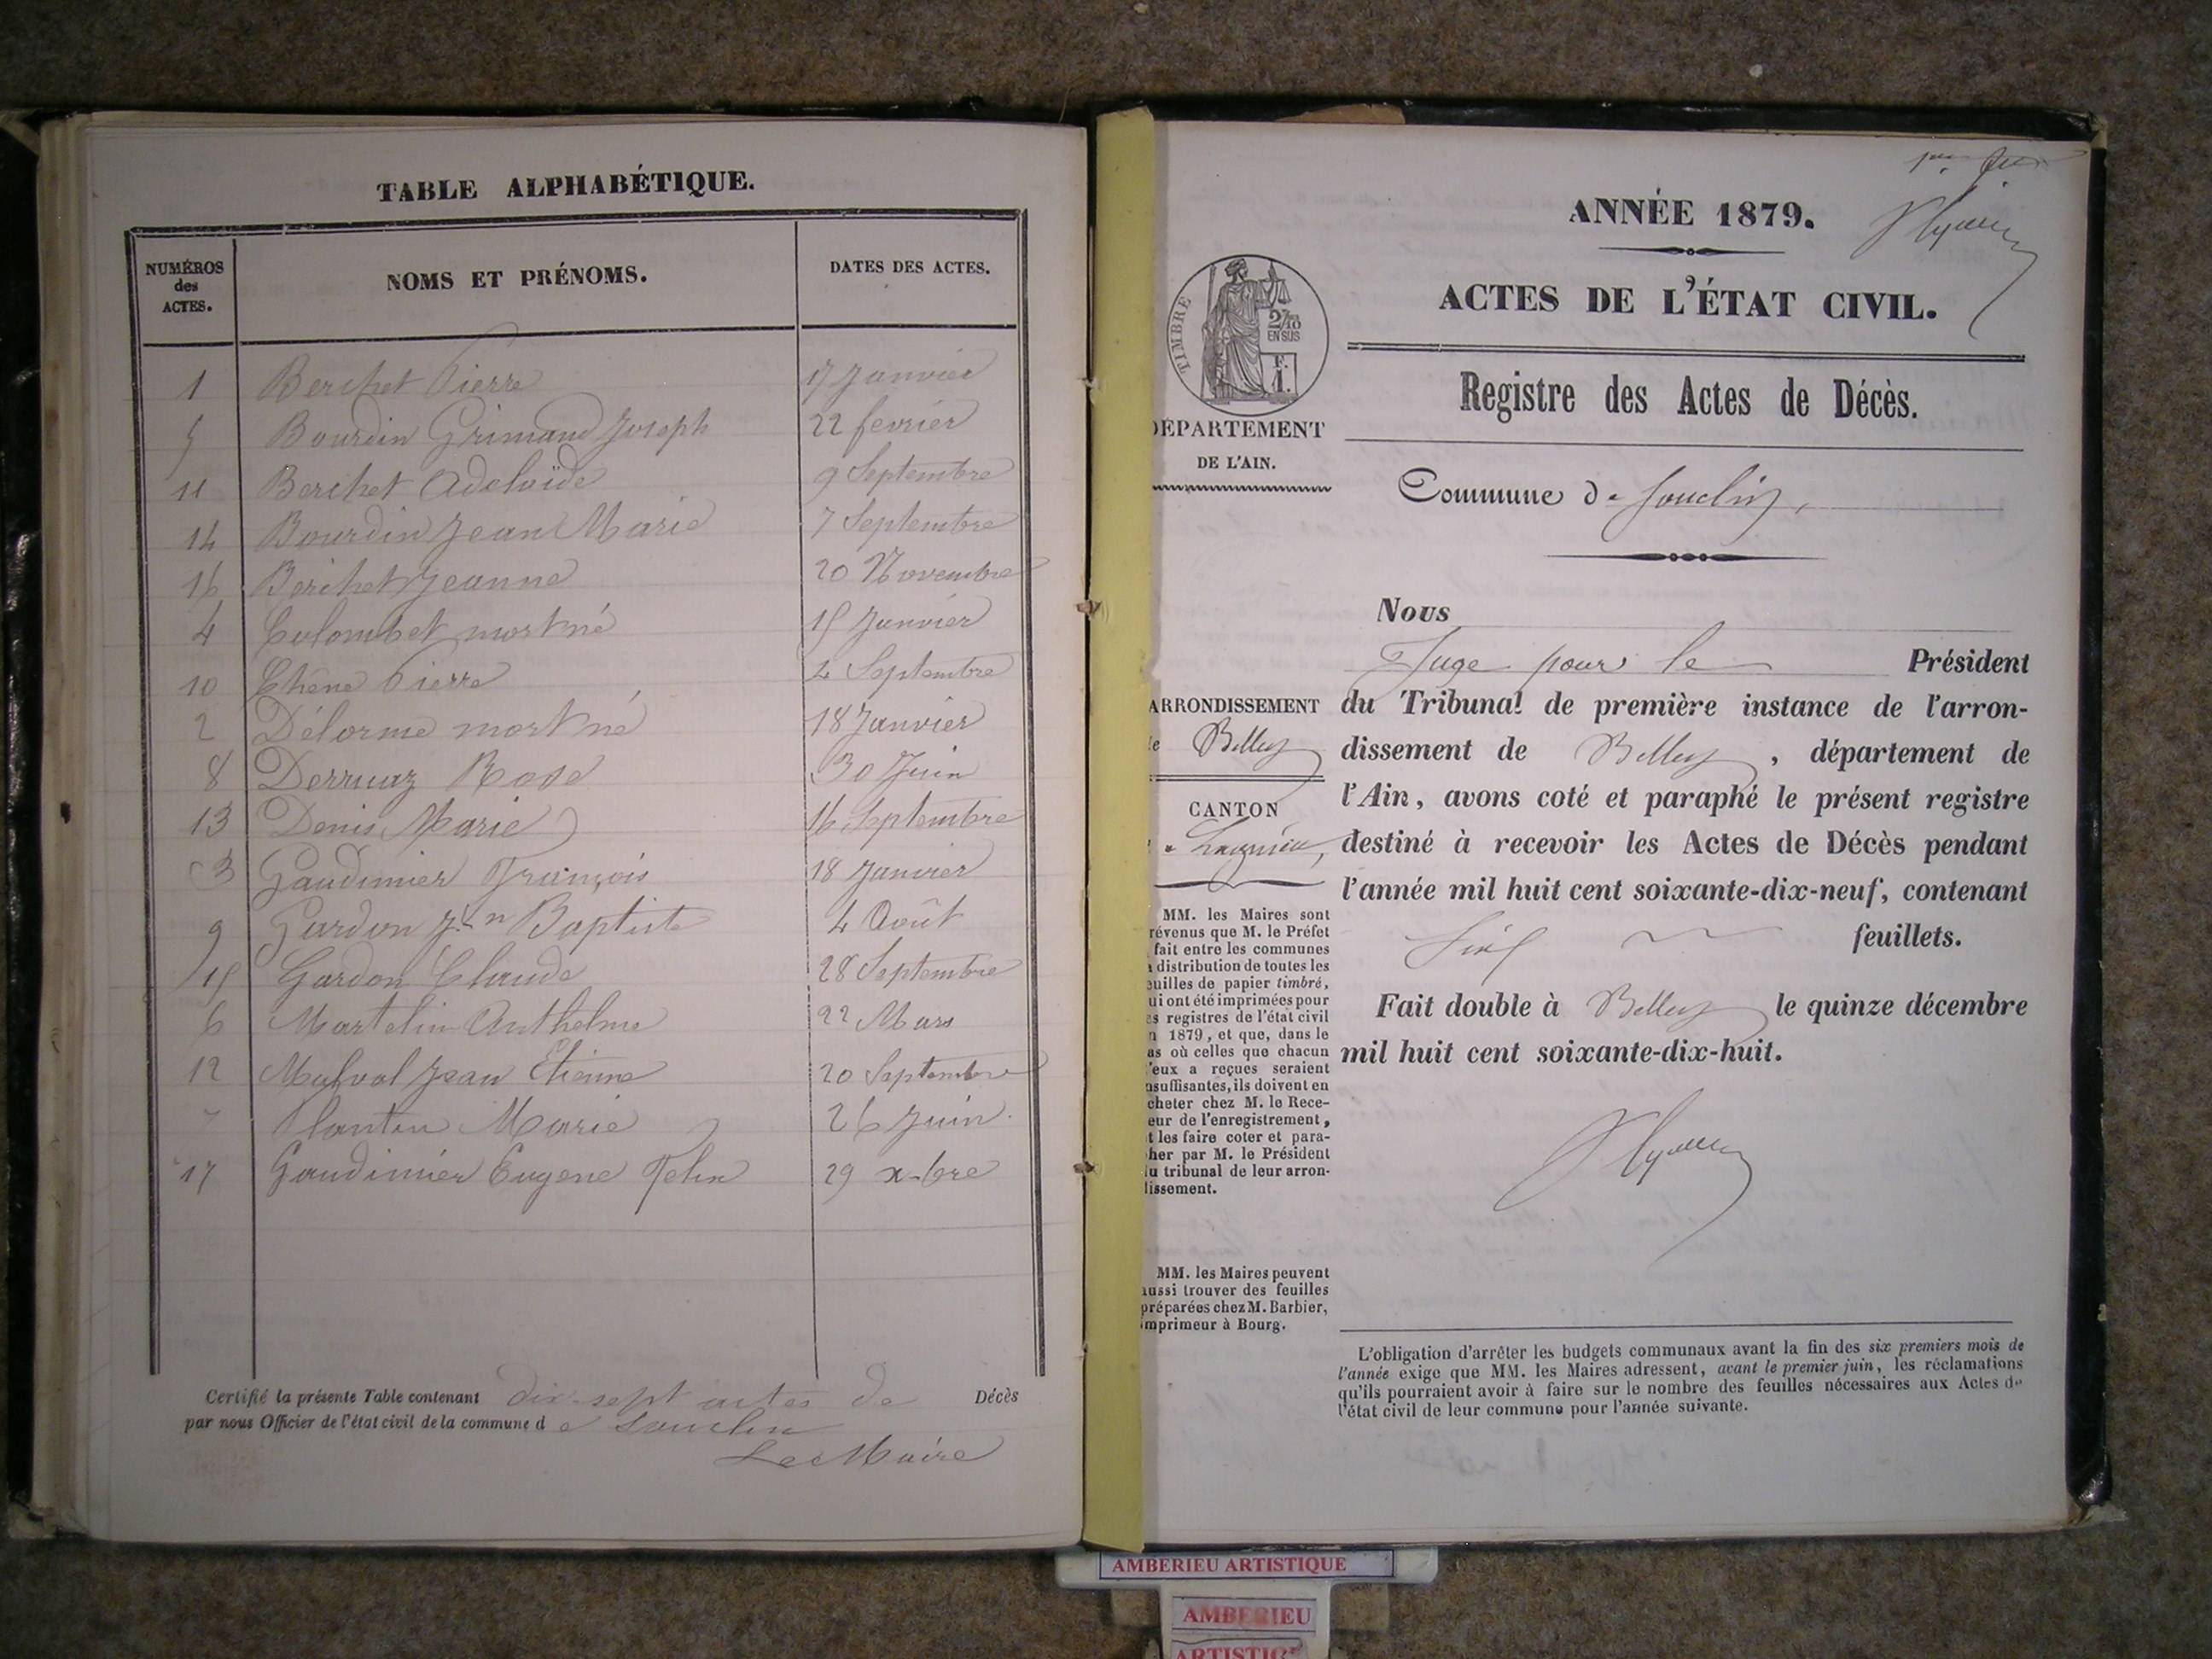 TABLE ALPHABÉTIQUE.
NUMÉROS
des
ACTES.
NOMS ET PRÉNOMS.
DATES DES ACTES.
1 Berchet Pierre 17 Janvier
5 Bourdin Grimaud Joseph 22 fevrier
11 Berchet Adelaïde 9 Septembre
14 Bourdin Jean Marie 7 Septembre
16 Berchet Jeanne 20 Novembre
4 Colombet mort né 15 Janvier
10 Chêne Pierre 4 Septembre
2 Délorme mort né 18 Janvier
8 Derruaz Rose 30 Juin
13 Denis Marie 16 Septembre
3 Gaudimier François 18 Janvier
9 Gardon Jn Baptiste 4 Août
15 Gardon Claude 28 Septembre
6 Martelin Anthelme 22 Mars
12 Mufval Jean Etienne 20 Septembre
Plantin Marie 26 Juin
17 Gaudimier Eugene Felix 29 x-bre
Certifié la présente Table contenant dix-sept actes de Décès
par nous Officier de l'état civil de la commune de Souclin
Le Maire
ANNÉE 1879.
ACTES DE L'ÉTAT CIVIL.
TIMBRE
2/10
EN SUS
F.
1.
Registre des Actes de Décès.
DÉPARTEMENT
DE L'AIN.
Commune de Souclin,
Nous
Juge pour le Président
du Tribunal de première instance de l'arron-
dissement de Belley, département de
l'Ain, avons coté et paraphé le présent registre
destiné à recevoir les Actes de Décès pendant
l'année mil huit cent soixante-dix-neuf, contenant
feuillets.
Fait double à Belley le quinze décembre
mil huit cent soixante-dix-huit.
ARRONDISSEMENT
de Belley
CANTON
de Lagnieu,
MM. les Maires sont
révenus que M. le Préfet
fait entre les communes
a distribution de toutes les
euilles de papier timbré,
ui ont été imprimées pour
es registres de l'état civil
n 1879, et que, dans le
as où celles que chacun
'eux a reçues seraient
nsuffisantes, ils doivent en
cheter chez M. le Rece-
eur de l'enregistrement,
t les faire coter et para-
her par M. le Président
u tribunal de leur arron-
issement.
MM. les Maires peuvent
aussi trouver des feuilles
préparées chez M. Barbier,
imprimeur à Bourg.
L'obligation d'arrêter les budgets communaux avant la fin des six premiers mois de
l'année exige que MM. les Maires adressent, avant le premier juin, les réclamations
qu'ils pourraient avoir à faire sur le nombre des feuilles nécessaires aux Actes de
l'état civil de leur commune pour l'année suivante.
AMBERIEU ARTISTIQUE
AMBERIEU
ARTISTIQUE